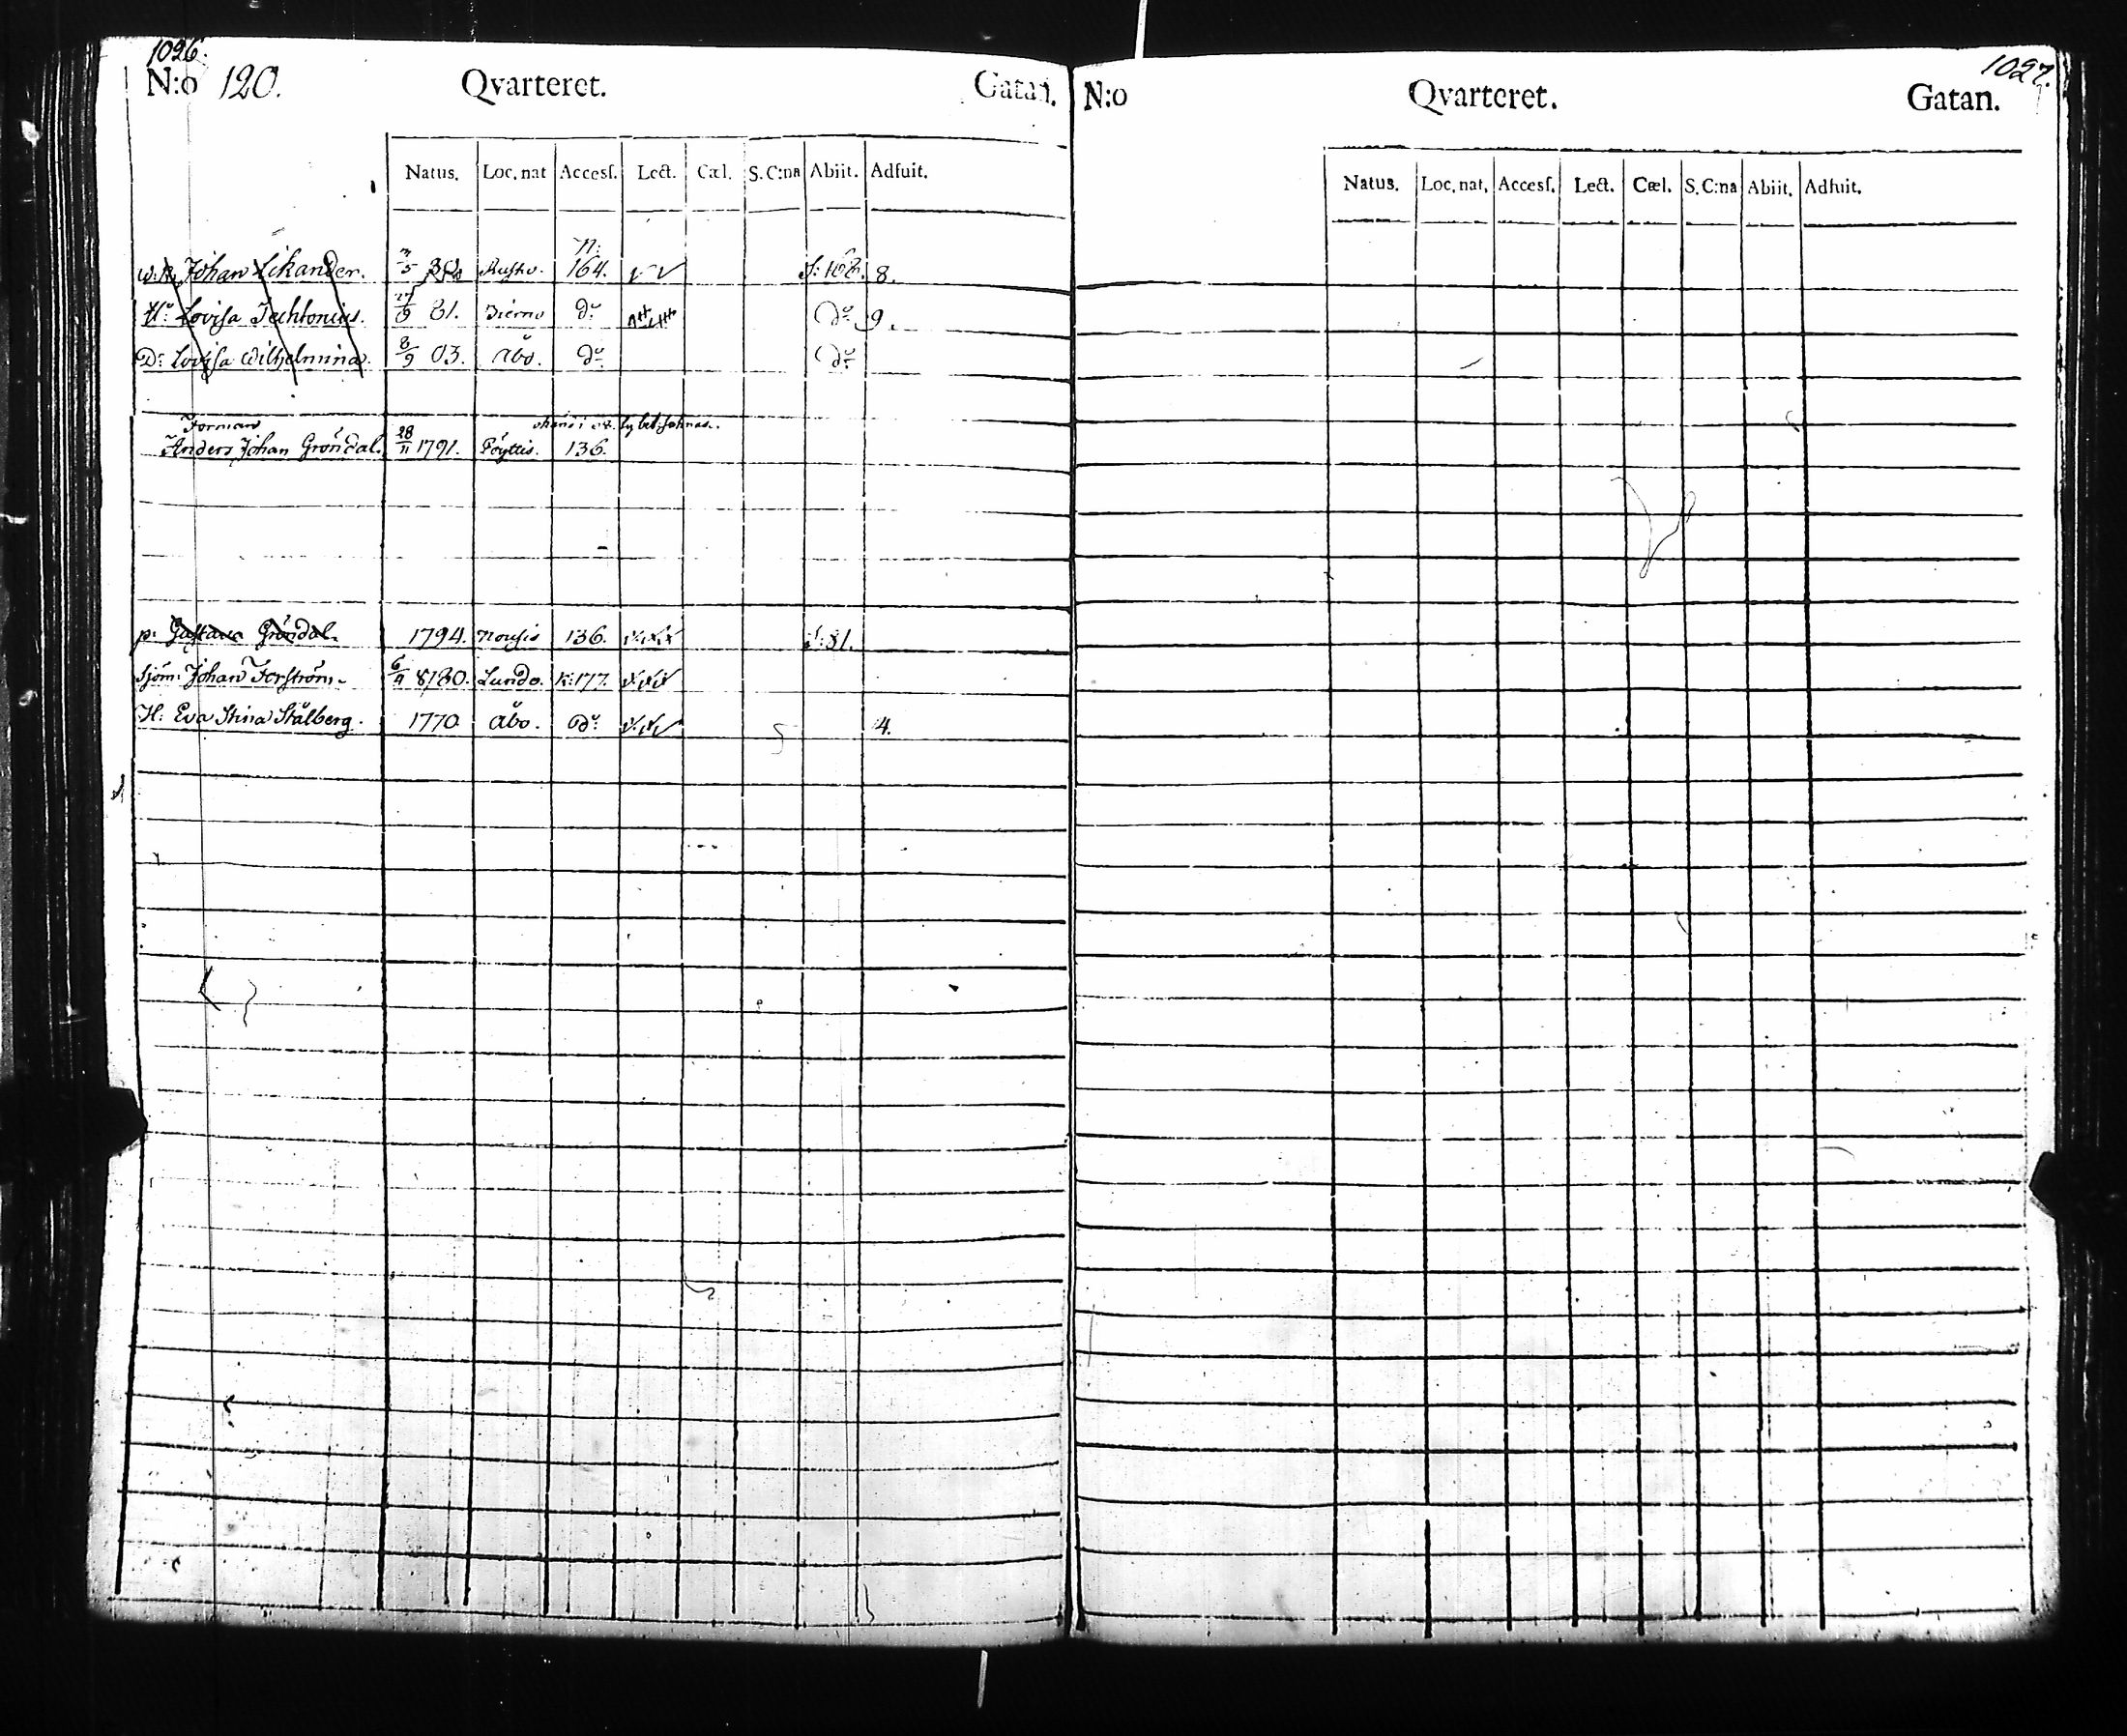 1026.
N:o 120. Qvarteret. Gatan.
Natus. Loc. nat Accesf. Lect. Cæl. S. C:na Abiit. Adfuit.
Johan Likander. 5 Rusko. N: 164. 8.
H: Lovisa Techtonius. 27/9 81. Bierno Do 9.
D: Lovisa Wilhelmina. 8/9 03. Åbo. Do Do
Forman
Anders Johan Gröndal. 28/11 1791. Pöyttis. 136.
p: Gustava Gröndal. 1794. Nousis 136. S:81.
Sjöm: Johan Forström. 1780. Lundo. K:177.
H: Eva Stina Stålberg. 1770 Åbo. Do 4.
1027.
N:o Qvarteret. Gatan.
Natus. Loc. nat. Accesf. Lect. Cæl. S. C:na Abiit. Adfuit.